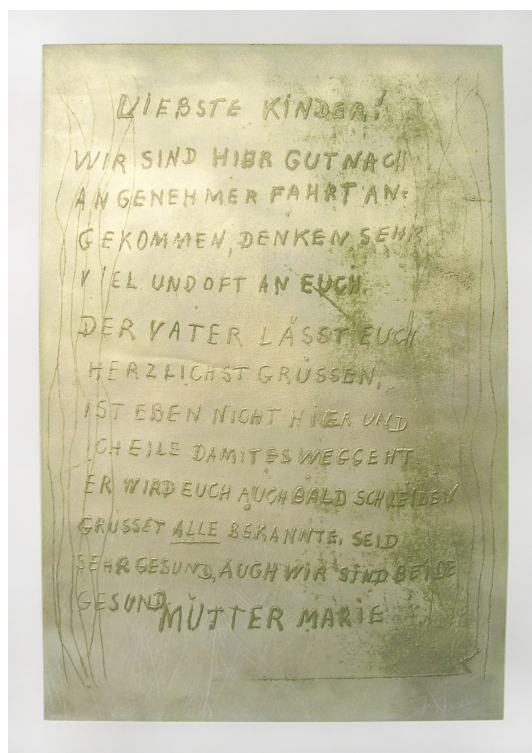 LIEBSTE KINDER!
WIR SIND HIER GUT NACH
ANGENEHMER FAHRT AN=
GEKOMMEN, DENKEN SEHR
VIEL UND OFT AN EUCH.
DER VATER LÄSST EUCH
HERZLICHST GRÜSSEN,
IST EBEN NICHT HIER UND
ICH EILE DAMIT ES WEGGEHT.
ER WIRD EUCH AUCH BALD SCHREIBEN
GRÜSSET ALLE BEKANNTE, SEID
SEHR GESUND, AUCH WIR SIND BEIDE
GESUND
MUTTER MARIE